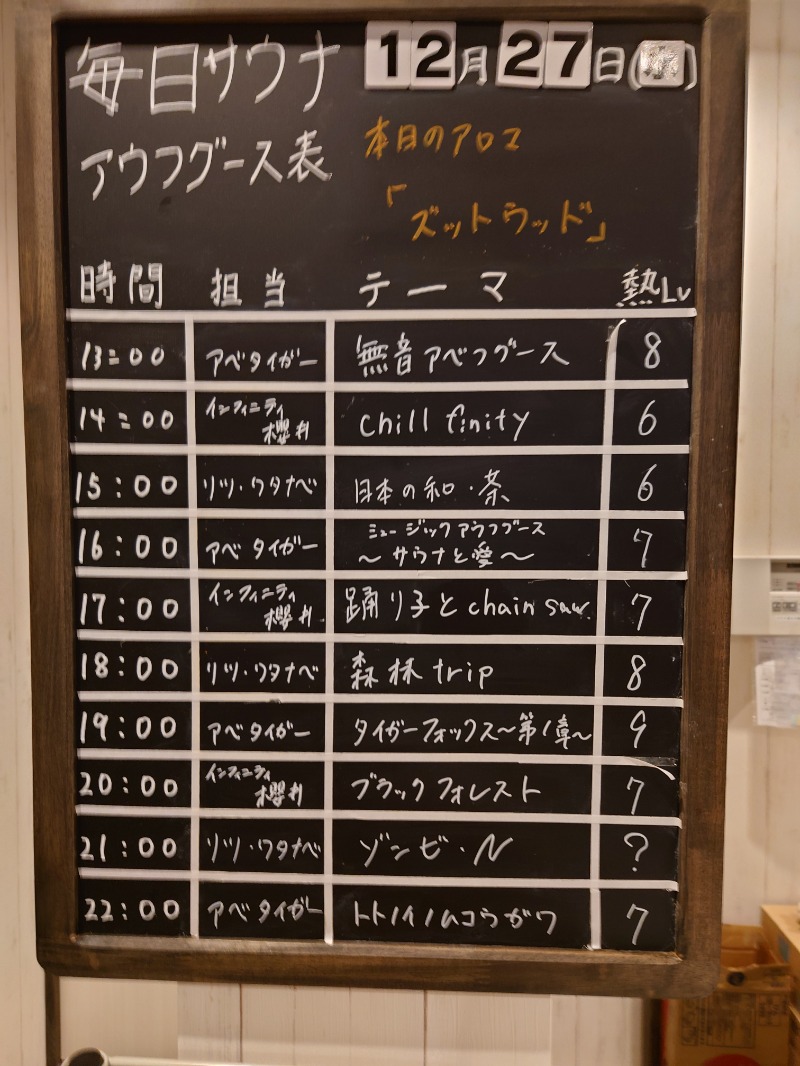 毎日サウナ 12月27日(水)
アウフグース表
本日のアロマ
「ズットウッド」
時間 担当 テーマ 熱Lv
13:00 アベタイガー 無音アベフグース 8
14:00 インフィニティ櫻井 chill finity 6
15:00 リツ・ワタナベ 日本の和・茶 6
16:00 アベタイガー ミュージックアウフグース 〜サウナと愛〜 7
17:00 インフィニティ櫻井 踊り子とchain saw. 7
18:00 リツ・ワタナベ 森林trip 8
19:00 アベタイガー タイガーフォックス〜第1章〜 9
20:00 インフィニティ櫻井 ブラックフォレスト 7
21:00 リツ・ワタナベ ゾンビ・N ?
22:00 アベタイガー トトノイノムコウガワ 7